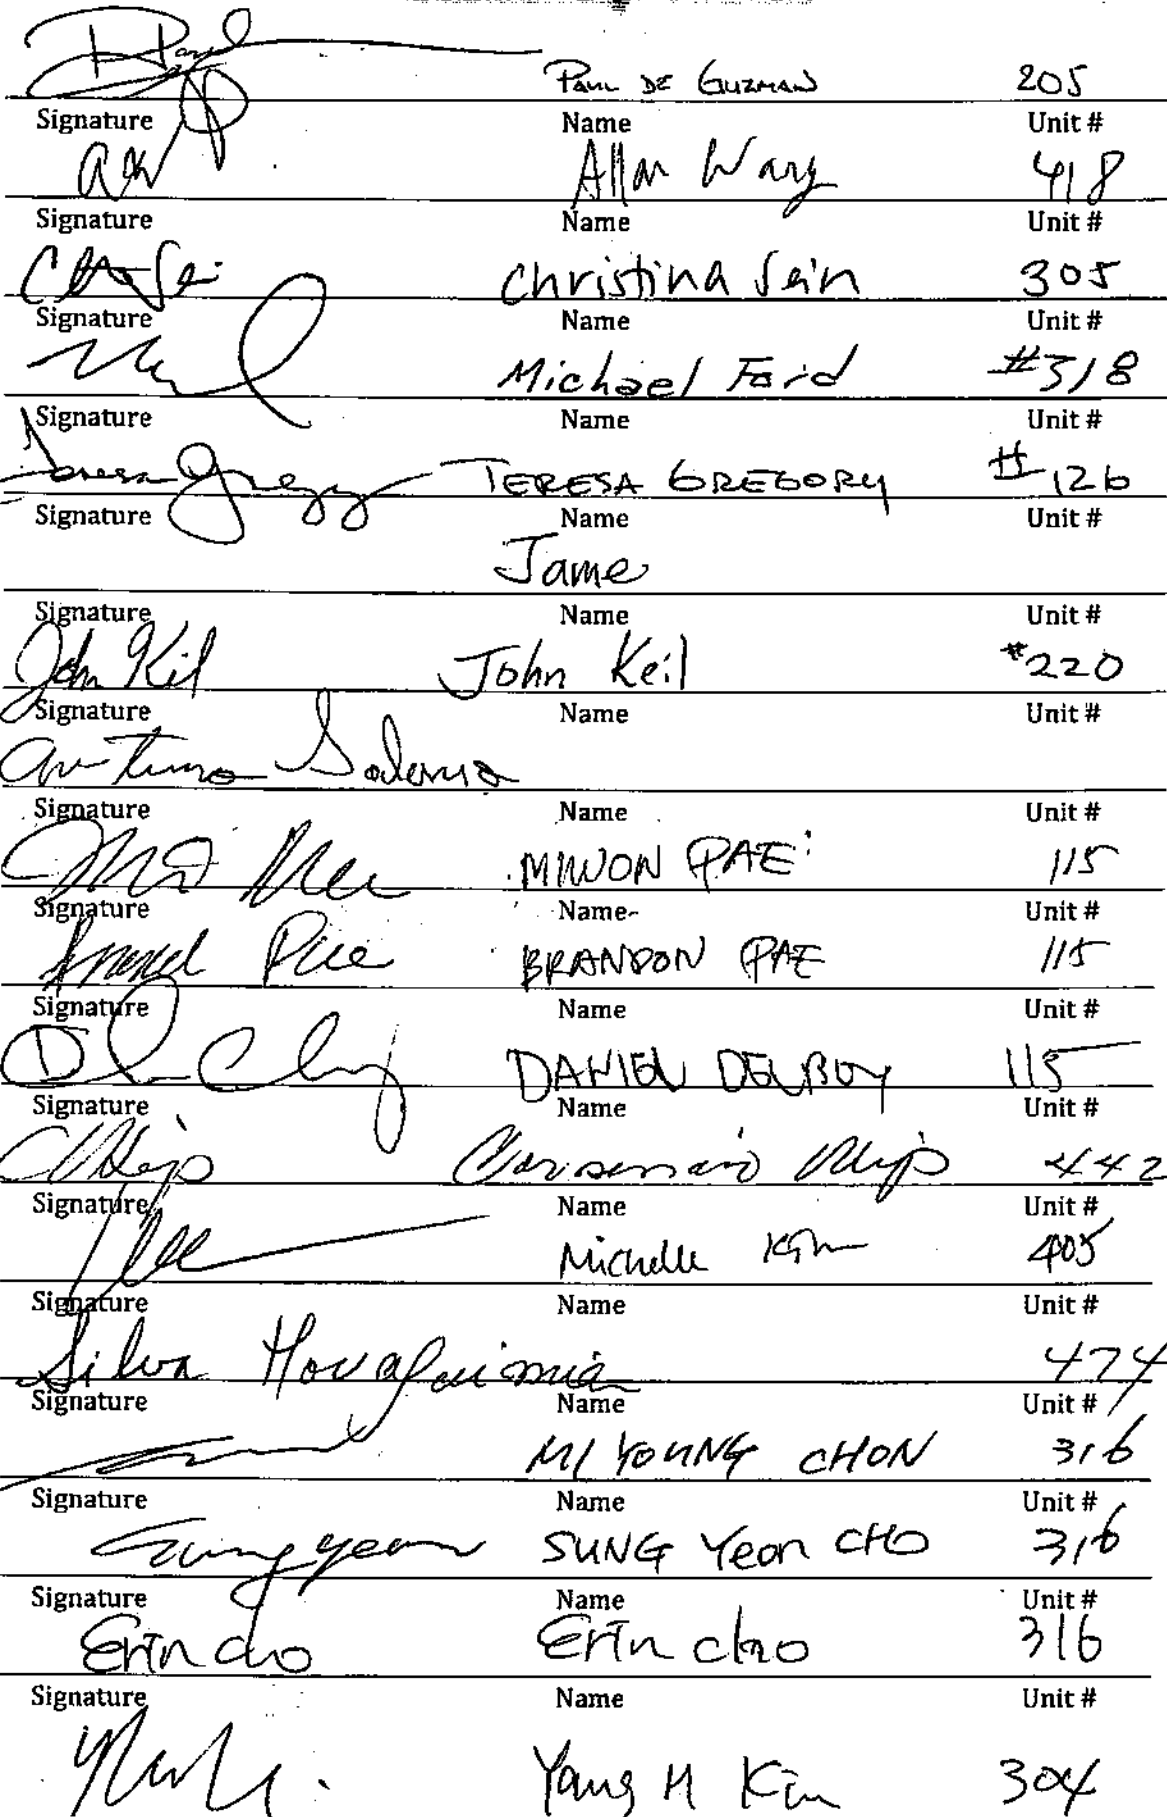 PAUL DE GUZMAN 205
Signature Name Unit #
Allan Wang 418
Signature Name Unit #
Christina Sein 305
Signature Name Unit #
Michael Ford #318
Signature Name Unit #
Teresa Gregory TERESA GREGORY #126
Signature Name Unit #
Jame
Signature Name Unit #
John Keil John Keil #220
Signature Name Unit #
Arturo
Signature Name Unit #
MIWON PAE 115
Signature Name Unit #
Pae BRANDON PAE 115
Signature Name Unit #
DANIEL 115
Signature Name Unit #
442
Signature Name Unit #
Michelle Kim 405
Signature Name Unit #
Silva 474
Signature Name Unit #
MI YOUNG CHON 316
Signature Name Unit #
Sung yeon SUNG Yeon CHO 316
Signature Name Unit #
Erin cho Erin cho 316
Signature Name Unit #
Yang H Kim 304